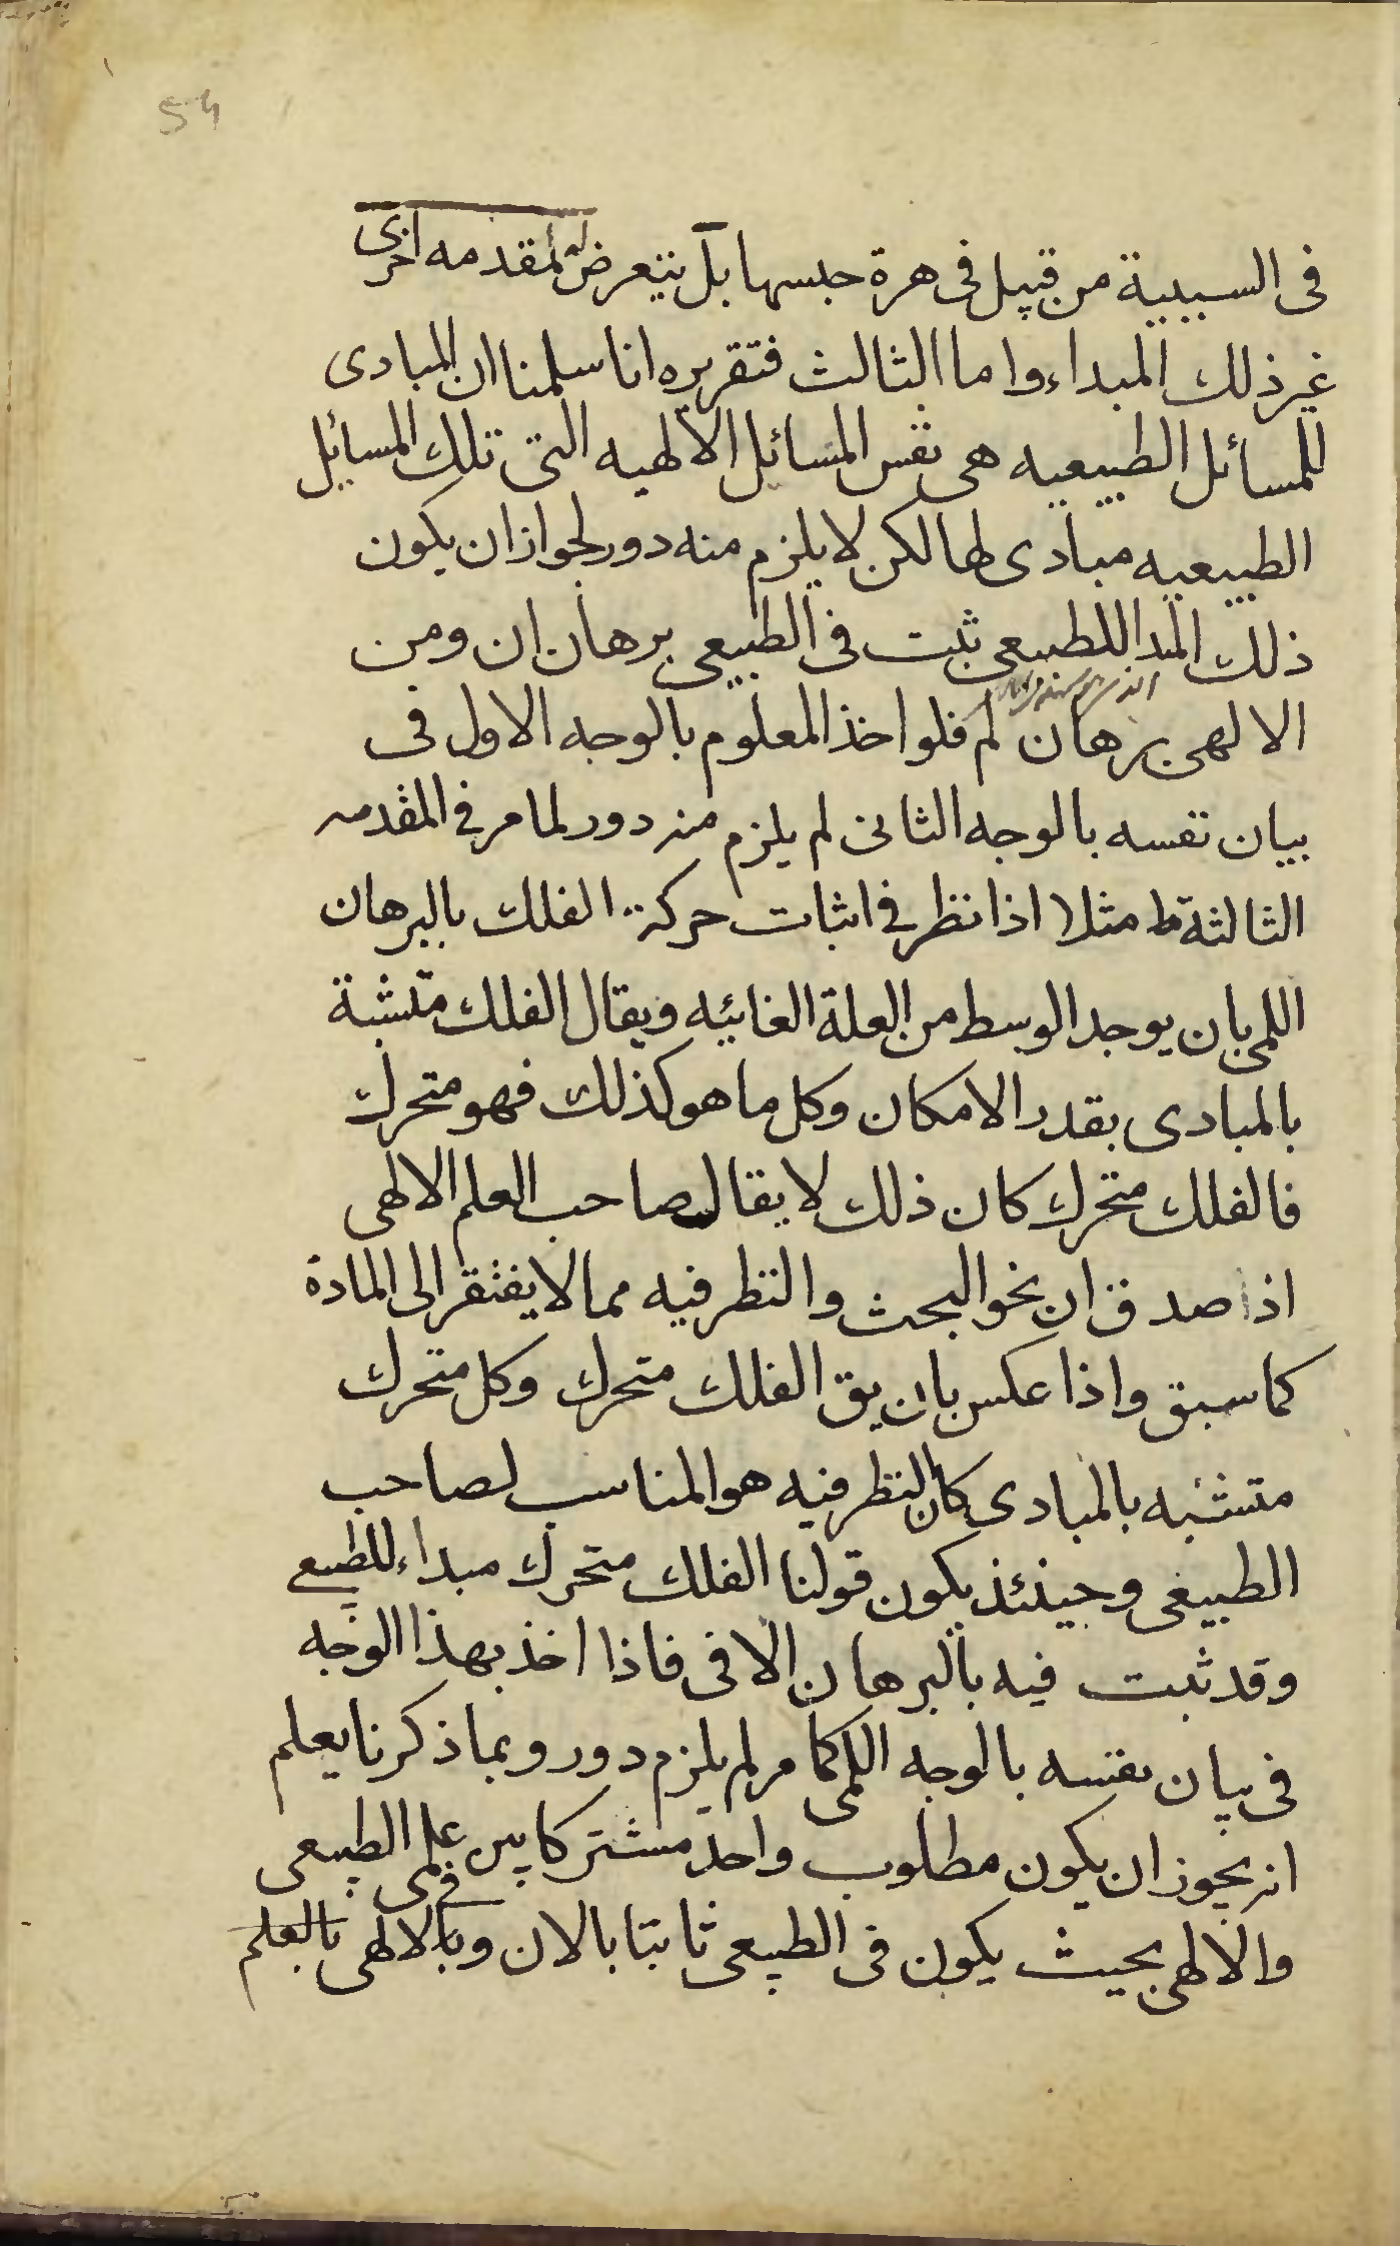 54
فى السببية من قبيل فى هرة حبسها بل يتعرض له لمقدمه اخرى
غير ذلك المبداء واما الثالث فتقريره انا سلمنا ان المبادى
للمسائل الطبيعيه هى نفس المسائل الالهيه التى تلك المسايل
الطبيعيه مبادى لها لكن لا يلزم منه دور لجواز ان يكون
ذلك المبدا للطبيعى ثبت فى الطبيعى برهان ان ومن
الالهى برهان لم فلو اخذ المعلوم بالوجه الاول فى
بيان نفسه بالوجه الثانى لم يلزم منه دور لما مر فى المقدمه
الثالثة ط مثلا اذا نظر فى اثبات حركة الفلك بالبرهان
اللمى بان يوجد الوسط من العلة الغائيه ويقال الفلك متشبة
بالمبادى بقدر الامكان وكل ما هو كذلك فهو متحرك
فالفلك متحرك كان ذلك لا يقال لصاحب العلم الالهى
اذا صدق ان نحو البحث والنظر فيه مما لا يفتقر الى المادة
كما سبق واذا عكس بان يق الفلك متحرك وكل متحرك
متشبه بالمبادى كان النظر فيه هو المناسب لصاحب
الطبيعى وحينئذ يكون قولنا الفلك متحرك مبداء للطبيعى
وقد ثبت فيه بالبرهان الافى فاذا اخذ بهذا الوجه
فى بيان نفسه بالوجه اللمى كما مر لم يلزم دور وبما ذكرنا يعلم
انه يجوز ان يكون مطلوب واحد مشتركا بين علمى الطبيعى
والالهى بحيث يكون فى الطبيعى ثابتا بالان وبالالهى بالعلم